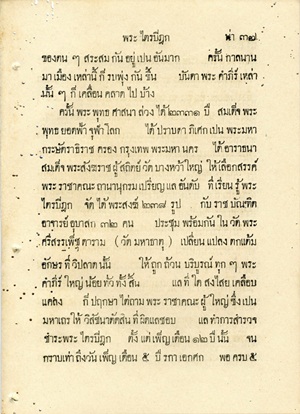 พระ ไตรปิฎก น่า ๓๗
ของคน ๆ สระสม กัน อยู่ เปน อันมาก ครั้น กาลนาน
มา เมือง เหล่านั้น ก็ รบพุ่ง กัน ขึ้น บันดา พระ คำภีร์ เหล่า
นั้น ๆ ก็ เคลื่อน คลาด ไป บ้าง
ครั้น พระ พุทธ ศาสนา ล่วง ได้ ๒๓๓๑ ปี สมเด็จ พระ
พุทธ ยอดฟ้า จุฬาโลก ได้ ปราบดา ภิเศก เปน พระมหา
กระษัตราธิราช ครอง กรุงเทพ พระมหา นคร ได้ อาราธนา
สมเด็จ พระสังฆราช ผู้ สถิตย์ วัด บางหว้า ใหญ่ ให้ เลือกสรรค์
พระ ราชาคณะ ถานานุกรม เปรียญ แล อันดับ ที่ เรียน รู้ พระ
ไตรปิฎก จัด ได้ พระสงฆ์ ๒๑๗ รูป กับ ราช บัณฑิต
อาจารย์ อุบาสก ๓๒ คน ประชุม พร้อมกัน ใน วัด พระ
ศรีสรรเพ็ชุ ดาราม (วัด มหาธาตุ) เปลี่ยน แปลง ตกแต้ม
อักษร ที่ วิปลาด นั้น ให้ ถูก ถ้วน บริบูรณ์ ทุก ๆ พระ
คำภีร์ ใหญ่ น้อย ทั่ว ทั้ง สิ้น แล ที่ ใด สงไสย เคลือบ
แคลง ก็ ปฤกษา ไต่ถาม พระ ราชาคณะ ผู้ ใหญ่ ซึ่ง เปน
มหาเถร ให้ วิสัชนา ตัดสิน ที่ ผิดแลชอบ แล ทำการสำรวจ
ชำระ พระ ไตรปิฎก ตั้ง แต่ เพ็ญ เดือน ๑๒ ปี นั้น จน
กราบเท่า ถึงวัน เพ็ญ เดือน ๕ ปี รกา เอกศก พอ ครบ ๕